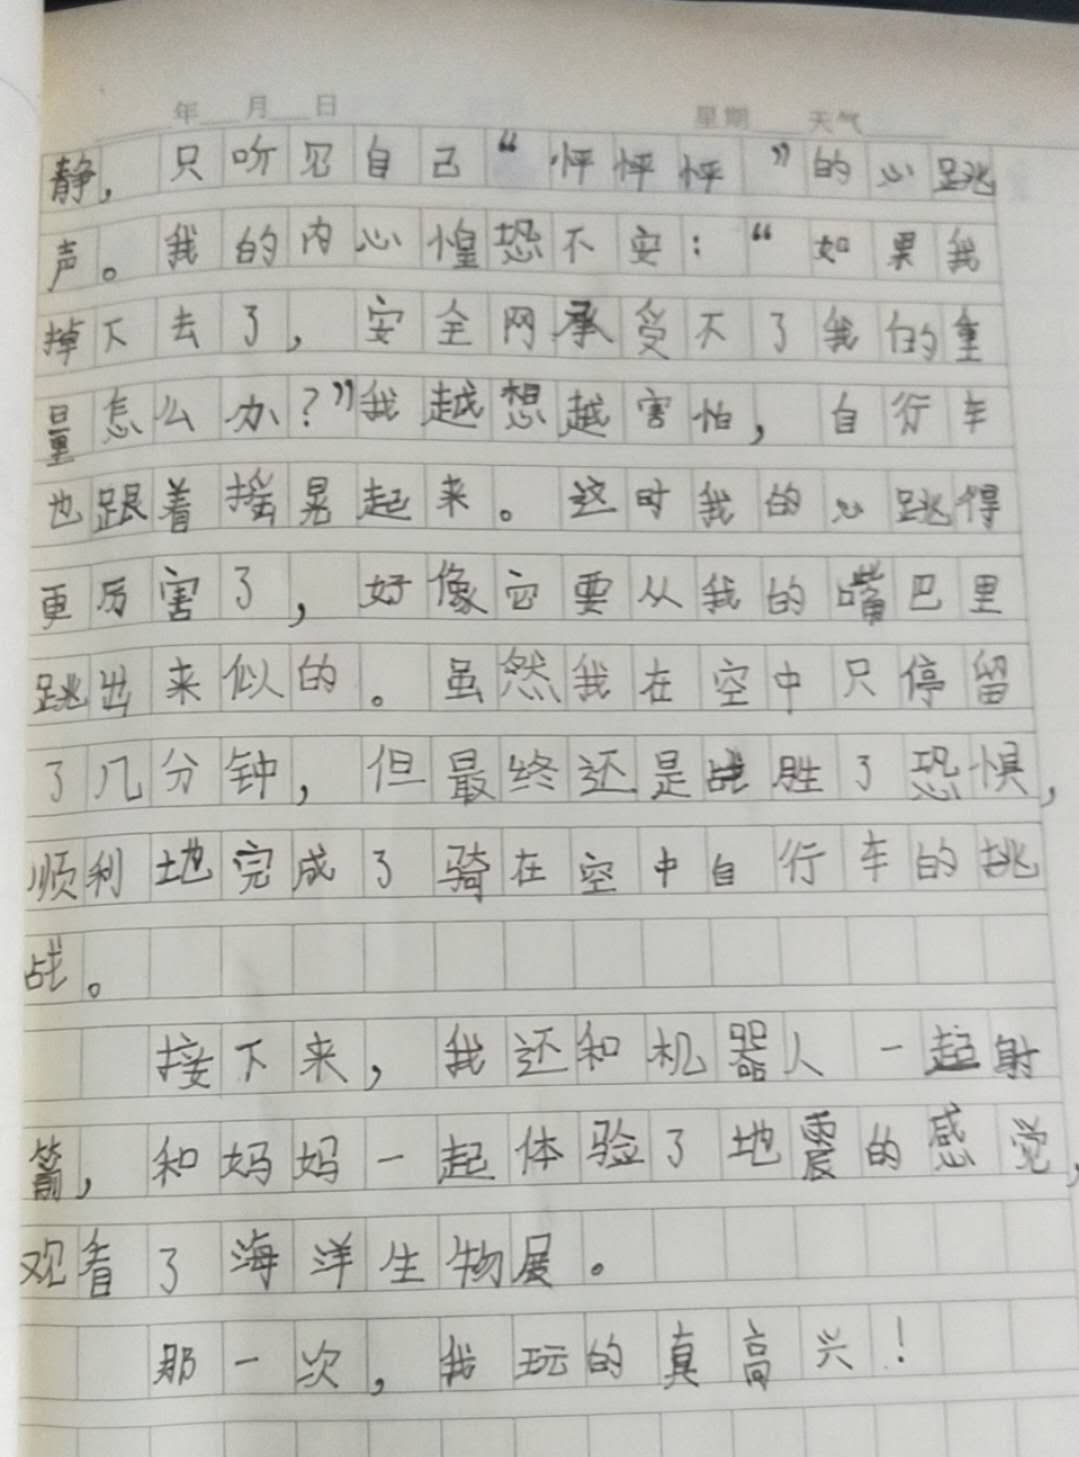 年 月 日 星期 天气
静，只听见自己“怦怦怦”的心跳
声。我的内心惶恐不安：“如果我
掉下去了，安全网承受不了我的重
量怎么办？”我越想越害怕，自行车
也跟着摇晃起来。这时我的心跳得
更厉害了，好像它要从我的嘴巴里
跳出来似的。虽然我在空中只停留
了几分钟，但最终还是战胜了恐惧，
顺利地完成了骑在空中自行车的挑
战。
接下来，我还和机器人一起射
箭，和妈妈一起体验了地震的感觉，
观看了海洋生物展。
那一次，我玩的真高兴！